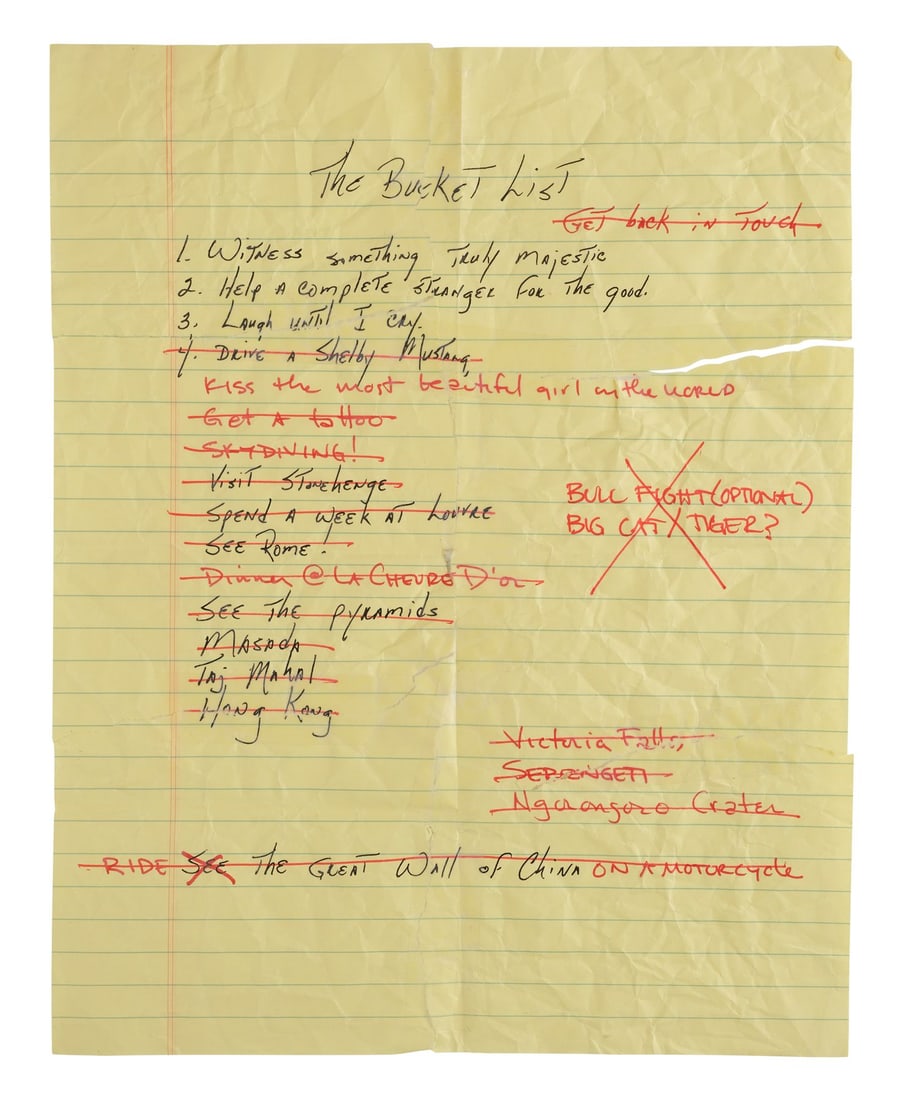 The Bucket List
Get back in Touch
1. Witness something Truly majestic
2. Help a complete stranger for the good.
3. Laugh until I cry.
4. Drive a Shelby Mustang
Kiss the most beautiful girl in the world
Get a tattoo
SKYDIVING!
Visit Stonehenge
Spend a week at Louvre
See Rome.
BULL FIGHT (OPTIONAL)
BIG CAT / TIGER?
Dinner @ La Chevre D'or
See the pyramids
Masada
Taj Mahal
Hong Kong
Victoria Falls,
SERENGETI
Ngorongoro Crater
RIDE See The Great Wall of China ON A MOTORCYCLE